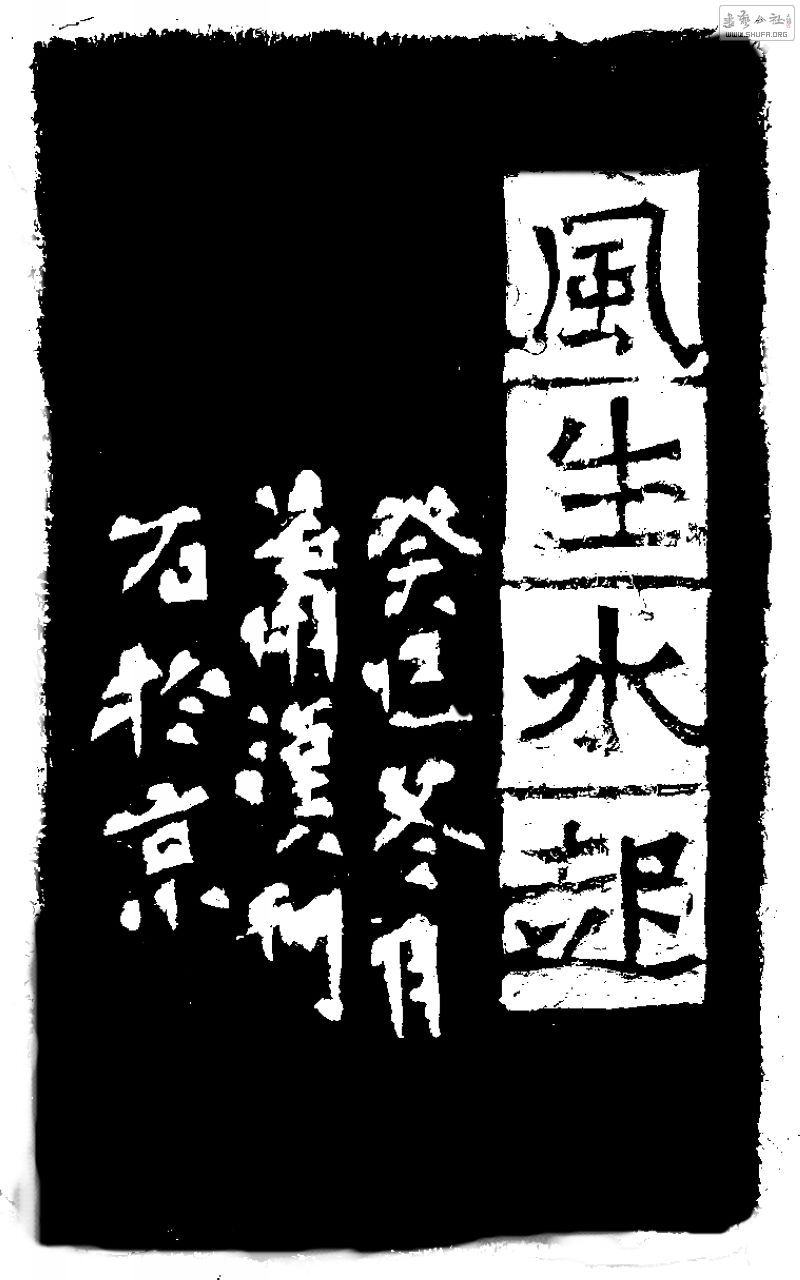 風生水起
癸巳冬月
蕭漢刻
石於京
书艺公社
WWW.SHUFA.ORG